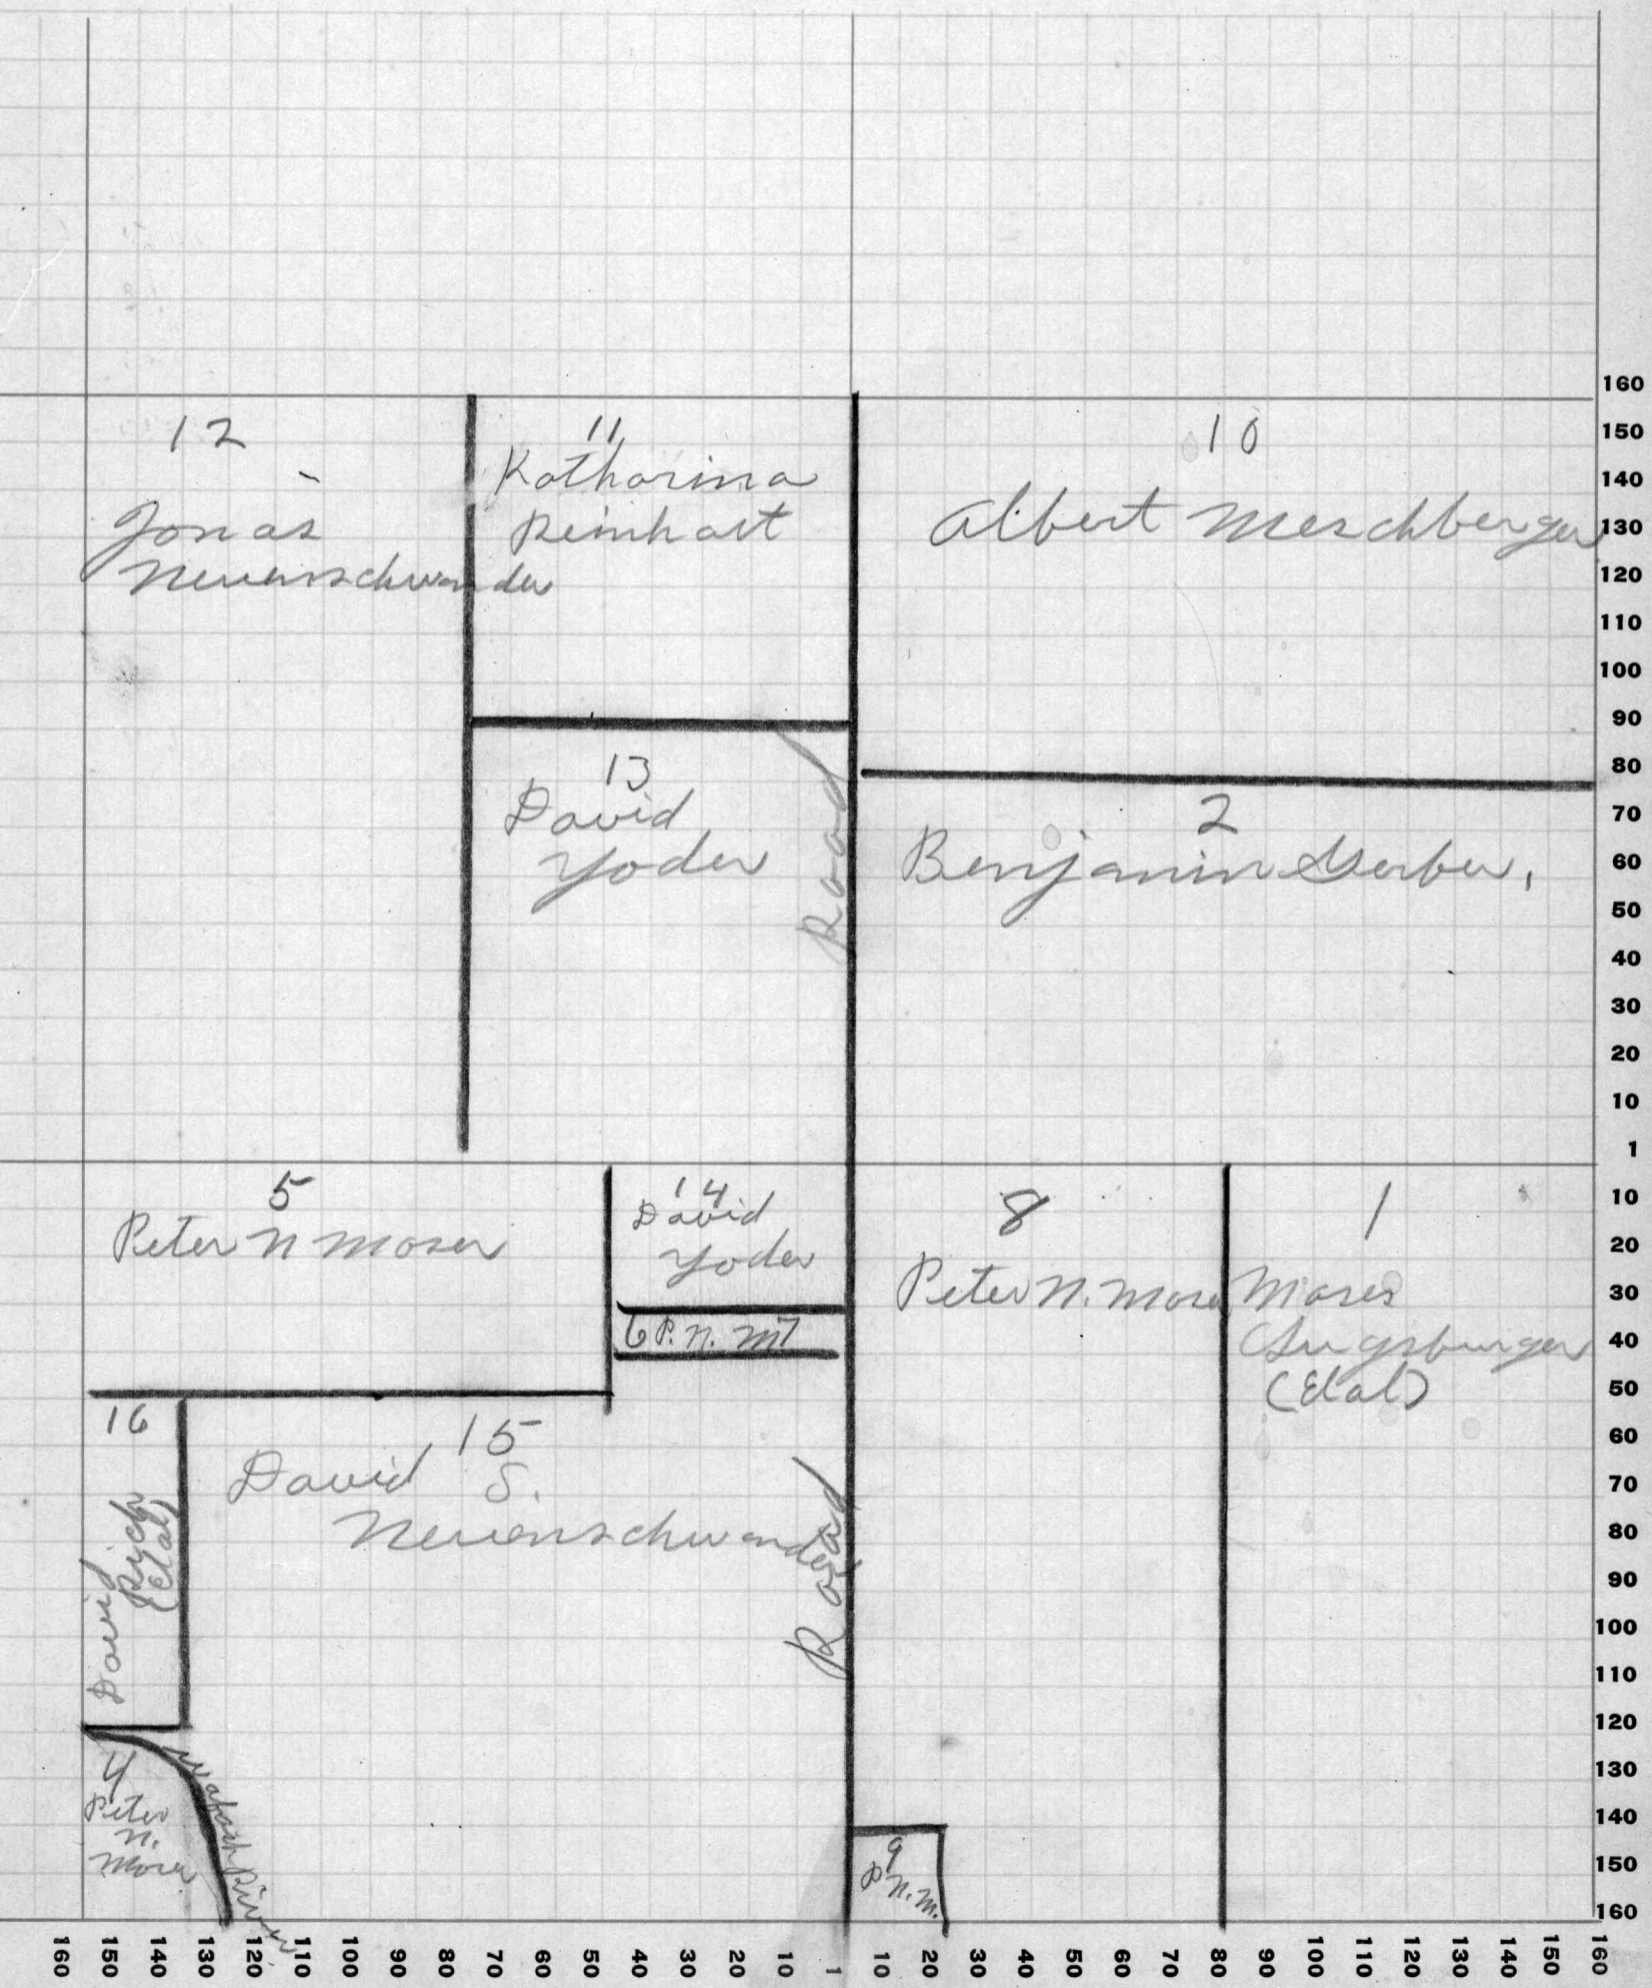 12
Jonas
Neuenschwander
11
Katharina
Reinhart
10
Albert Meschberger
13
David
Yoder
Road
2
Benjamin Gerber,
5
Peter N Moser
14
David
Yoder
6 P. N. M 7
8
Peter N. Moser
1
Moses
Augsburger
(Etal)
16
David
Rich
(Etal)
15
David S.
Neuenschwander
Road
4
Peter
N.
Moser
Wabash River
9
P. N. M.
160
150
140
130
120
110
100
90
80
70
60
50
40
30
20
10
1
10
20
30
40
50
60
70
80
90
100
110
120
130
140
150
160
160 150 140 130 120 110 100 90 80 70 60 50 40 30 20 10 1 10 20 30 40 50 60 70 80 90 100 110 120 130 140 150 160